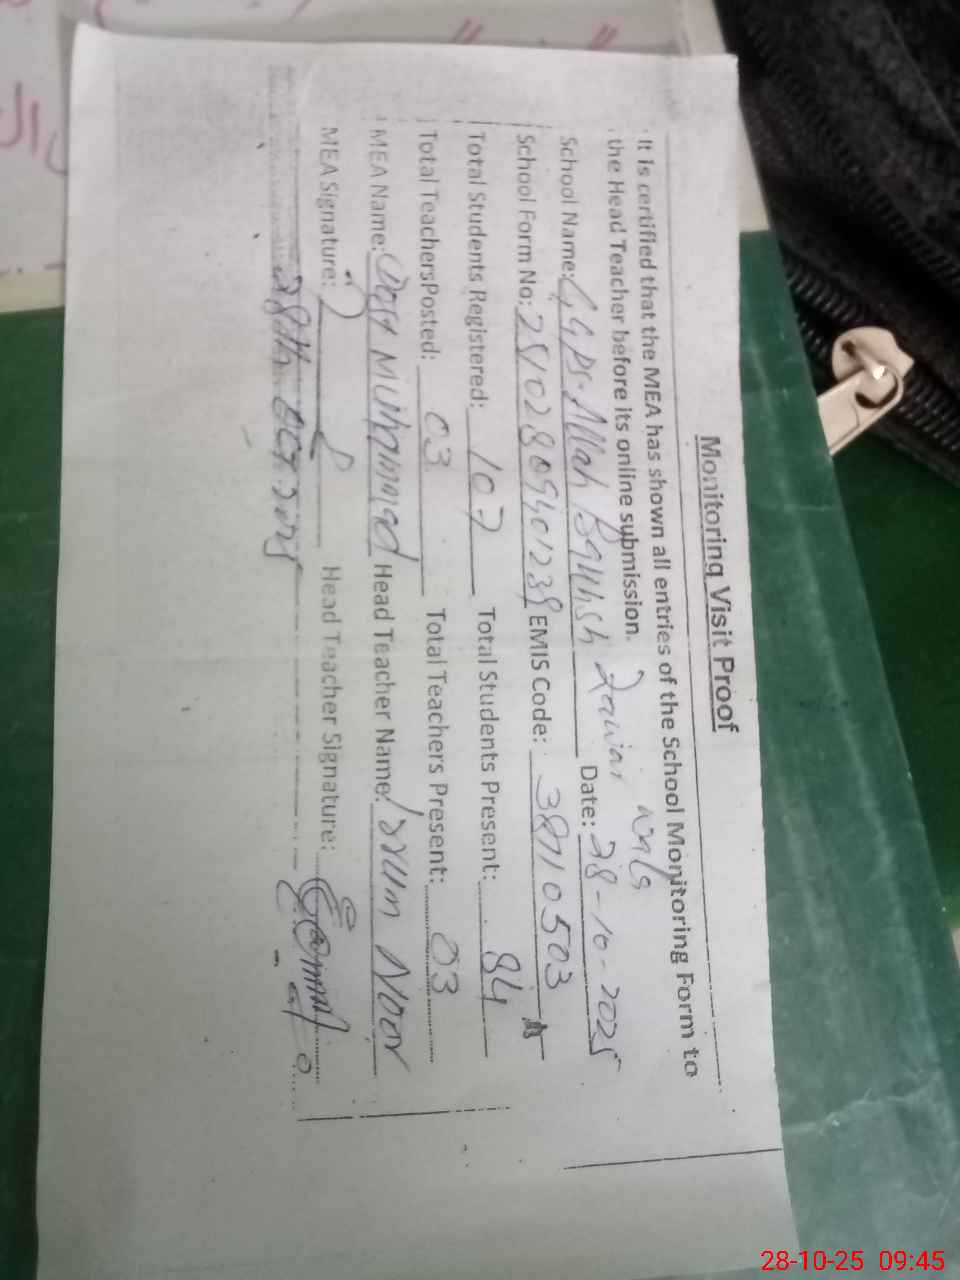 Monitoring Visit Proof
It is certified that the MEA has shown all entries of the School Monitoring Form to
the Head Teacher before its online submission.
School Name: GGPS. Allah Bakhsh Zawar wala Date: 28-10-2025
School Form No: EMIS Code: 38110503
Total Students Registered: 107 Total Students Present: 84
Total TeachersPosted: 03 Total Teachers Present: 03
MEA Name: Dost Muhammad Head Teacher Name: Irum Noor
MEA Signature: Head Teacher Signature:
28th OCT 2025
28-10-25 09:45